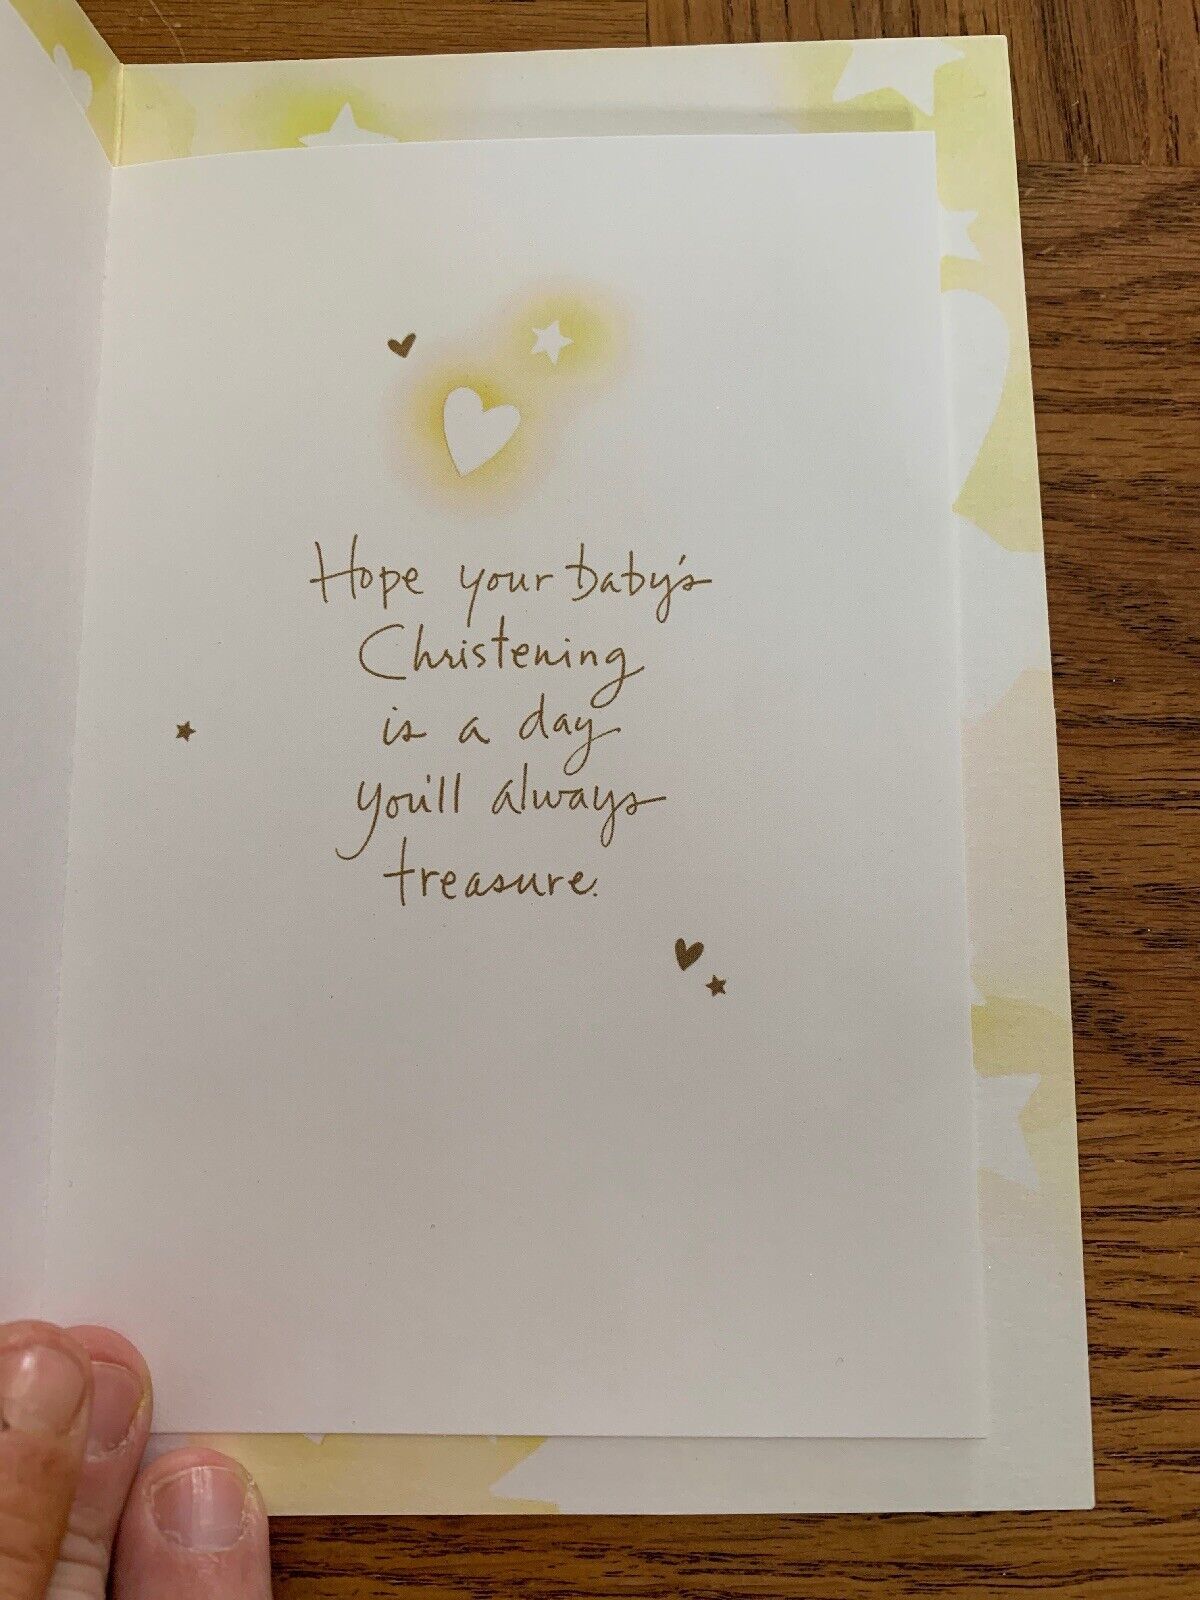 Hope your baby's
Christening
is a day
you'll always
treasure.